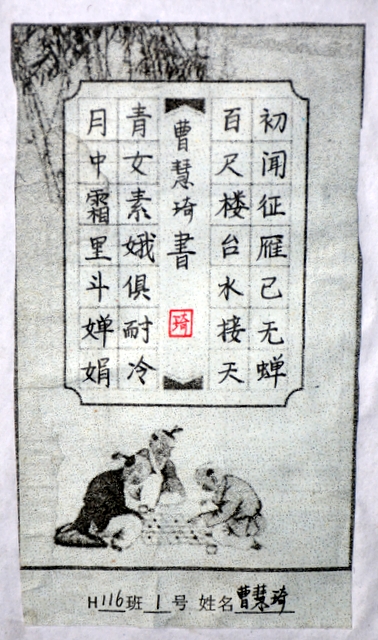 初闻征雁已无蝉
百尺楼台水接天
曹慧琦書
琦
青女素娥俱耐冷
月中霜里斗婵娟
H116班1号 姓名曹慧琦